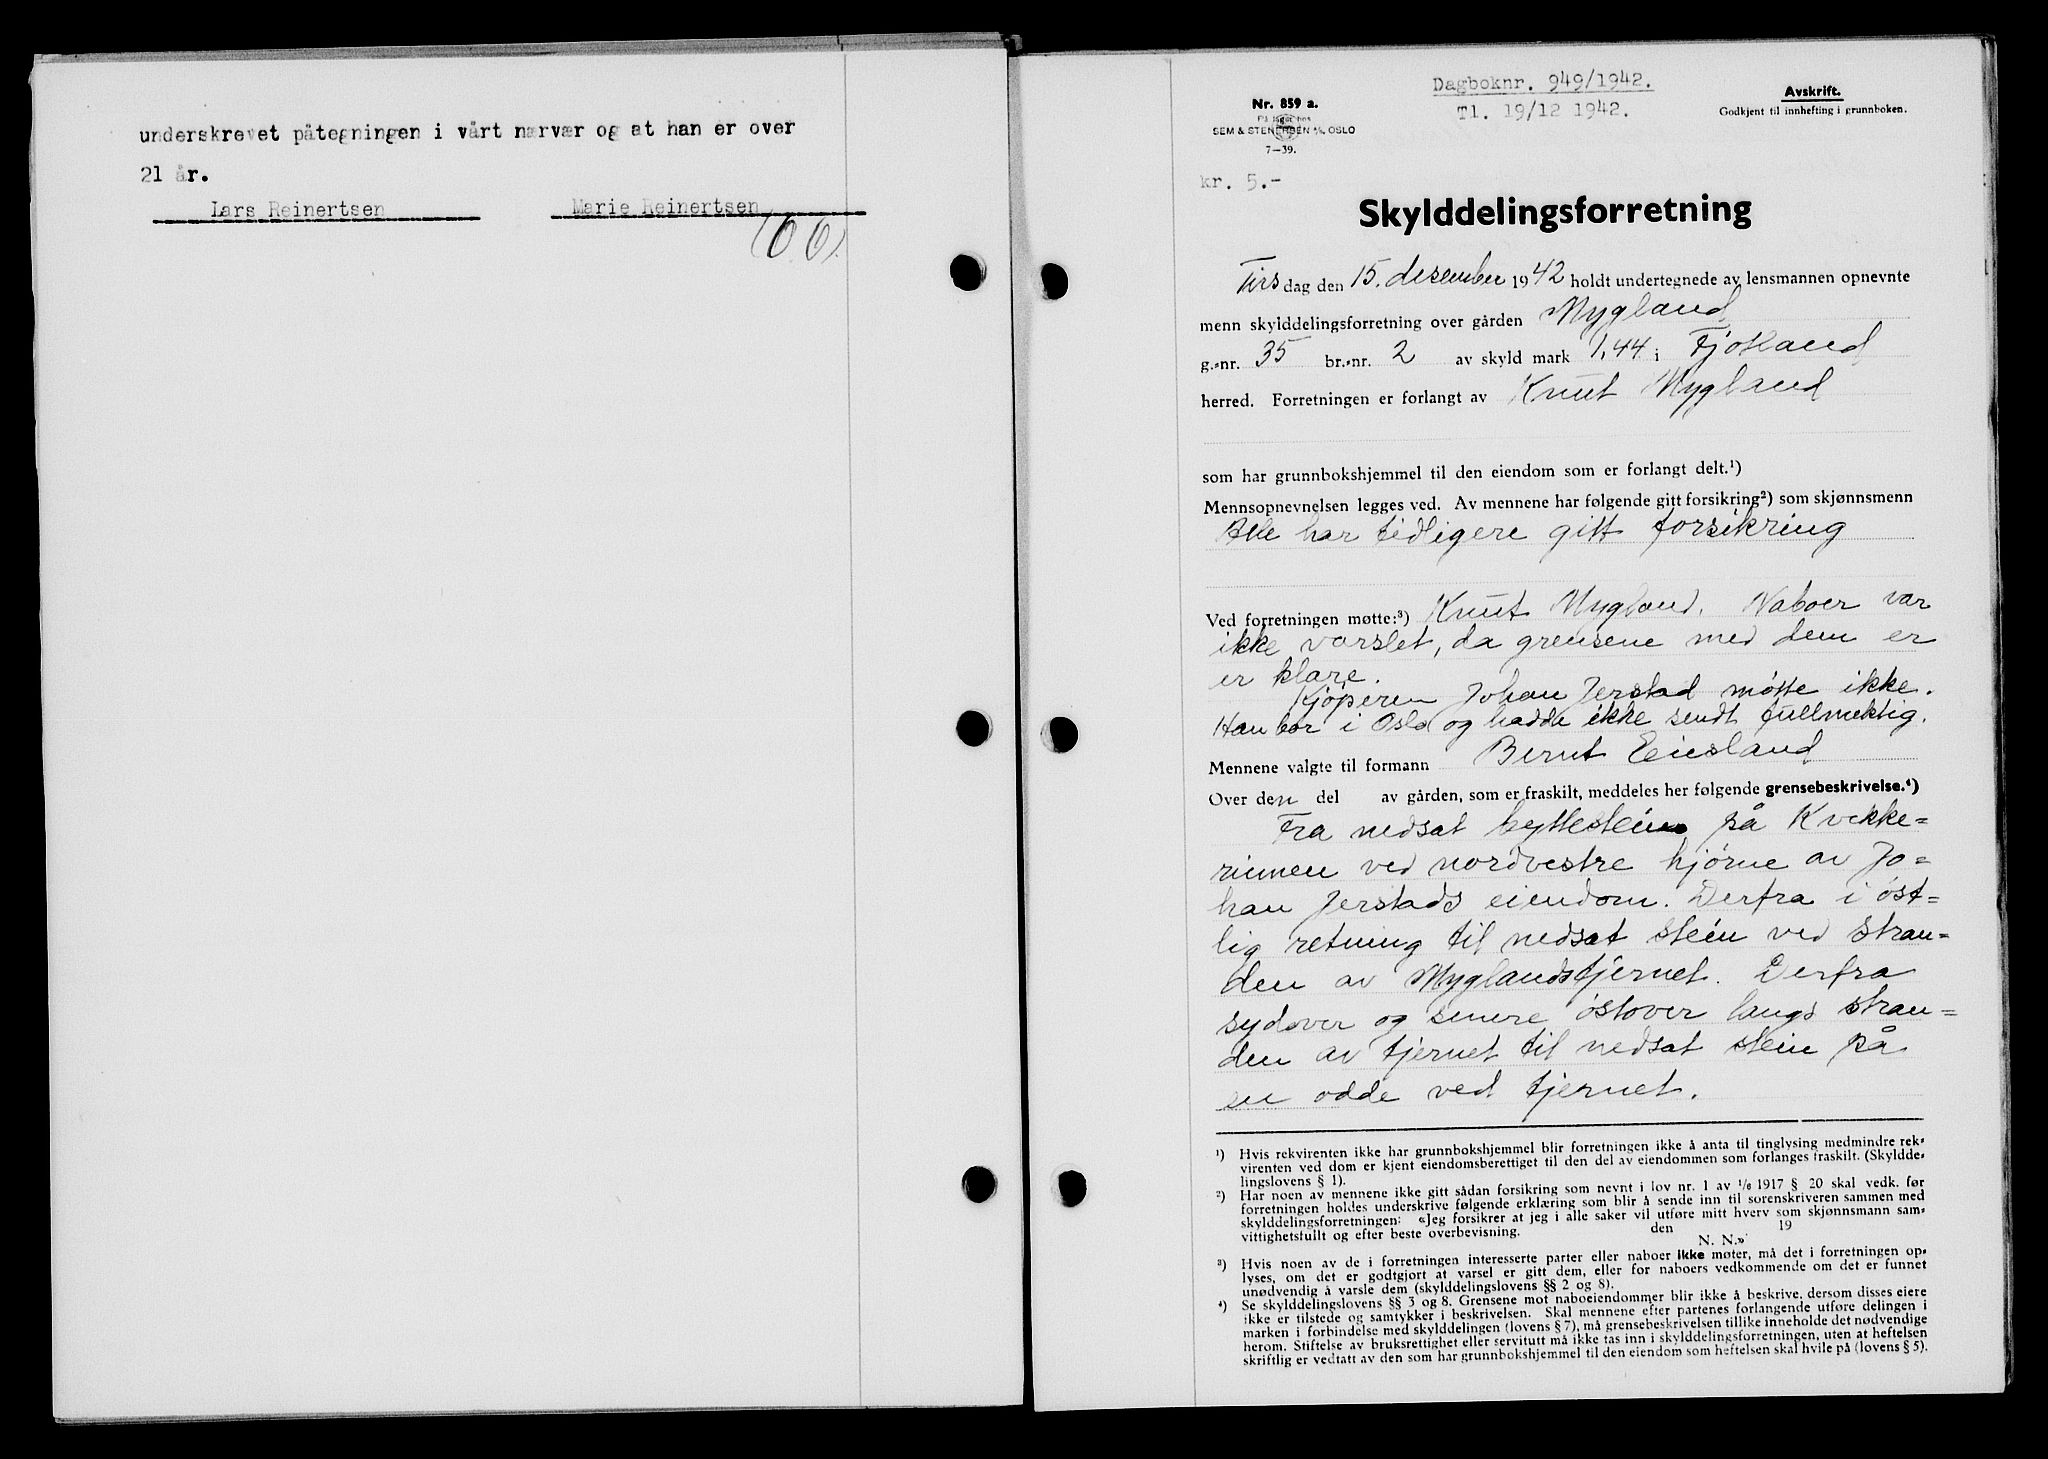 underskrevet påtegningen i vårt nærvær og at han er over
21 år.
Lars Reinertsen Marie Reinertsen
Dagboknr. 949/1942.
Tl. 19/12 1942.
Avskrift.
Godkjent til innhefting i grunnboken.
Nr. 859 a.
På lager hos
SEM & STENERSEN A/S, OSLO
7—39.
kr. 5.-
Skylddelingsforretning
Tirsdag den 15. desember 1942 holdt undertegnede av lensmannen opnevnte
menn skylddelingsforretning over gården Mygland
g.-nr. 35 br.-nr. 2 av skyld mark 1,44 i Fjotland
herred. Forretningen er forlangt av Knut Mygland
som har grunnbokshjemmel til den eiendom som er forlangt delt.¹)
Mennsopnevnelsen legges ved. Av mennene har følgende gitt forsikring²) som skjønnsmenn
Alle har tidligere gitt forsikring
Ved forretningen møtte:³) Knut Mygland. Naboer var
ikke varslet, da grensene med dem er
er klare.
Kjøperen Johan Jerstad møtte ikke.
Han bor i Oslo og hadde ikke sendt fullmektig.
Mennene valgte til formann Bernt Eiesland
Over den del av gården, som er fraskilt, meddeles her følgende grensebeskrivelse.⁴)
Fra nedsat byttestein på Kvikke=
rinnen ved nordvestre hjørne av Jo=
han Jerstads eiendom. Derfra i øst=
lig retning til nedsat stein ved stran=
den av Myglandstjernet. Derfra
sydover og senere østover langs stran=
den av tjernet til nedsat stein på
en odde ved tjernet.
¹) Hvis rekvirenten ikke har grunnbokshjemmel blir forretningen ikke å anta til tinglysing medmindre rek-
virenten ved dom er kjent eiendomsberettiget til den del av eiendommen som forlanges fraskilt. (Skyldde-
lingslovens § 1).
²) Har noen av mennene ikke gitt sådan forsikring som nevnt i lov nr. 1 av 1/6 1917 § 20 skal vedk. før
forretningen holdes underskrive følgende erklæring som blir å sende inn til sorenskriveren sammen med
skylddelingsforretningen: «Jeg forsikrer at jeg i alle saker vil utføre mitt hverv som skjønnsmann sam-
vittighetsfullt og efter beste overbevisning. den 19
N. N.»
³) Hvis noen av de i forretningen interesserte parter eller naboer ikke møter, må det i forretningen op-
lyses, om det er godtgjort at varsel er gitt dem, eller for naboers vedkommende om det er funnet
unødvendig å varsle dem (skylddelingslovens §§ 2 og 8).
⁴) Se skylddelingslovens §§ 3 og 8. Grensene mot naboeiendommer blir ikke å beskrive, dersom disses eiere
ikke er tilstede og samtykker i beskrivelsen. Skal mennene efter partenes forlangende utføre delingen i
marken i forbindelse med skylddelingen (lovens § 7), må grensebeskrivelsen tillike inneholde det nødvendige
herom. Stiftelse av bruksrettighet eller servitutt må ikke tas inn i skylddelingsforretningen, uten at heftelsen
skriftlig er vedtatt av den som har grunnbokshjemmel til den eiendom som heftelsen skal hvile på (lovens § 5).